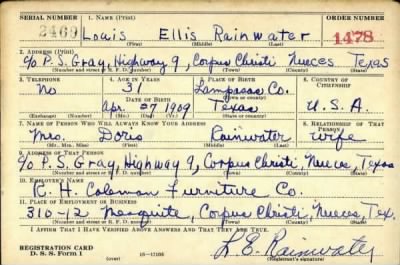 SERIAL NUMBER 1. Name (Print) ORDER NUMBER
2469 Louis Ellis Rainwater 1478
(First) (Middle) (Last)
2. Address (Print)
c/o P.S. Gray, Highway 9, Corpus Christi Nueces Texas
(Number and street or R. F. D. number) (Town) (County) (State)
3. Telephone 4. Age in Years 5. Place of Birth 6. Country of Citizenship
No 31 Lampasas Co.
Date of Birth (Town or county)
Apr. 27 1909 Texas U.S.A.
(Exchange) (No.) (Mo.) (Day) (Yr.) (State or country)
7. Name of Person Who Will Always Know Your Address 8. Relationship of That Person
Mrs. Doris Rainwater wife
(Mr., Mrs., Miss) (First) (Middle) (Last)
9. Address of That Person
c/o P.S. Gray, Highway 9, Corpus Christi, Nueces, Texas
(Number and street or R. F. D. number) (Town) (County) (State)
10. Employer's Name
R. H. Coloman Furniture Co.
11. Place of Employment or Business
310-12 Mesquite, Corpus Christi, Nueces, Tex.
(Number and street or R. F. D. number) (Town) (County) (State)
I Affirm That I Have Verified Above Answers and That They Are True.
REGISTRATION CARD
D. S. S. Form 1 (over) 16—17105
L. E. Rainwater
(Registrant's signature)